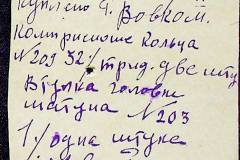 куплено Я. Вовком.
Компресионые Кольца
№ 203 32/трид. две шту
Втулка головки
шатуна № 203
1/одна штука